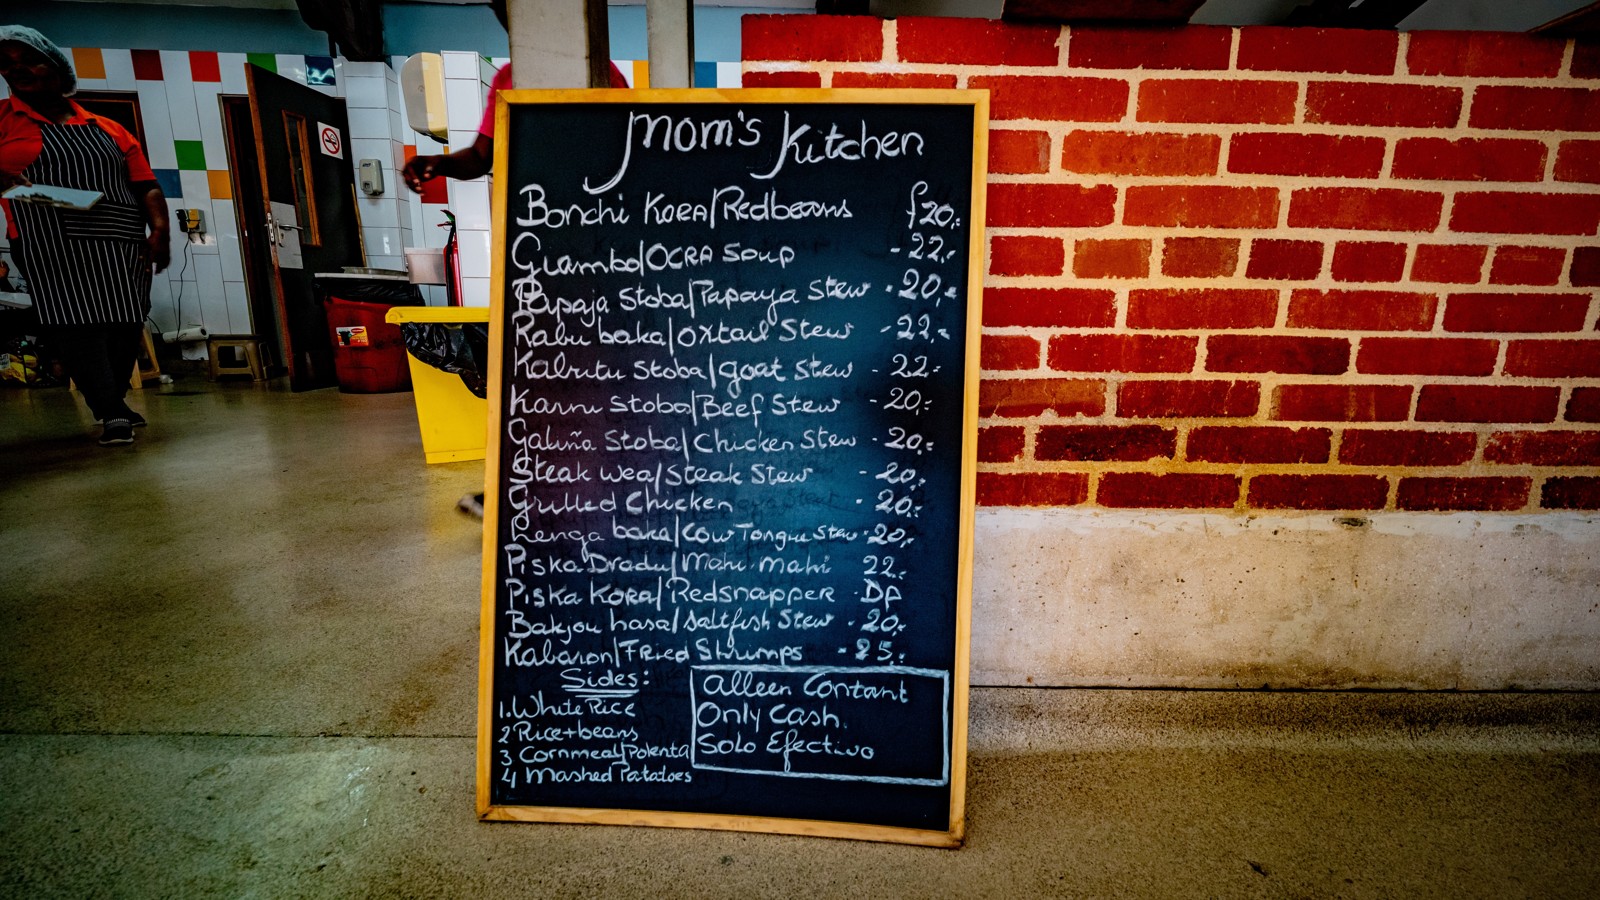 Mom's Kitchen
Bonchi Kora/Redbeans f20,-
Giambo/Ocra Soup -22,-
Papaja Stoba/Papaya Stew -20,-
Rabu baka/Oxtail Stew -22,-
Kabritu Stoba/goat Stew -22-
Karni Stoba/Beef Stew -20,-
Galuña Stoba/Chicken Stew -20,-
Steak wea/Steak Stew -20,-
Grilled Chicken -20,-
Lenga baka/Cow Tongue Stew -20,-
Piska Dradu/Mahi mahi 22,-
Piska Kora/Redsnapper -DP
Bakjou hasa/Saltfish Stew -20,-
Kabaron/Fried Shrimps -25,-
Sides:
1. White Rice
2 Rice+beans
3 Cornmeal/Polenta
4 Mashed Patatoes
Alleen Contant
Only Cash.
Solo Efectivo